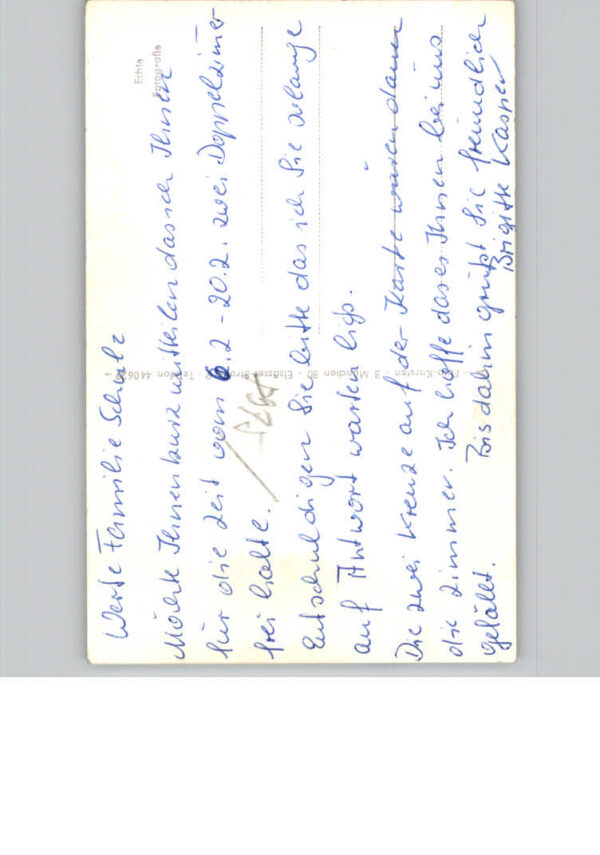 Werte Familie Schulz
Möchte Ihnen kurz mitteilen das ich Ihnen
für die Zeit vom 6.2 - 20.2. zwei Doppelzimer
frei halte.
Entschuldigen Sie bitte das ich Sie solange
auf Antwort warten ließ.
Die zwei Kreuze auf der Karte wären dann
die Zimmer. Ich hoffe das es Ihnen bei uns
gefällt. Bis dahin grüßt Sie freundlich
Brigitte Kasner
Echte
Fotografie
Kersten · 8 München 80 · Elsässer · Telefon 44 06